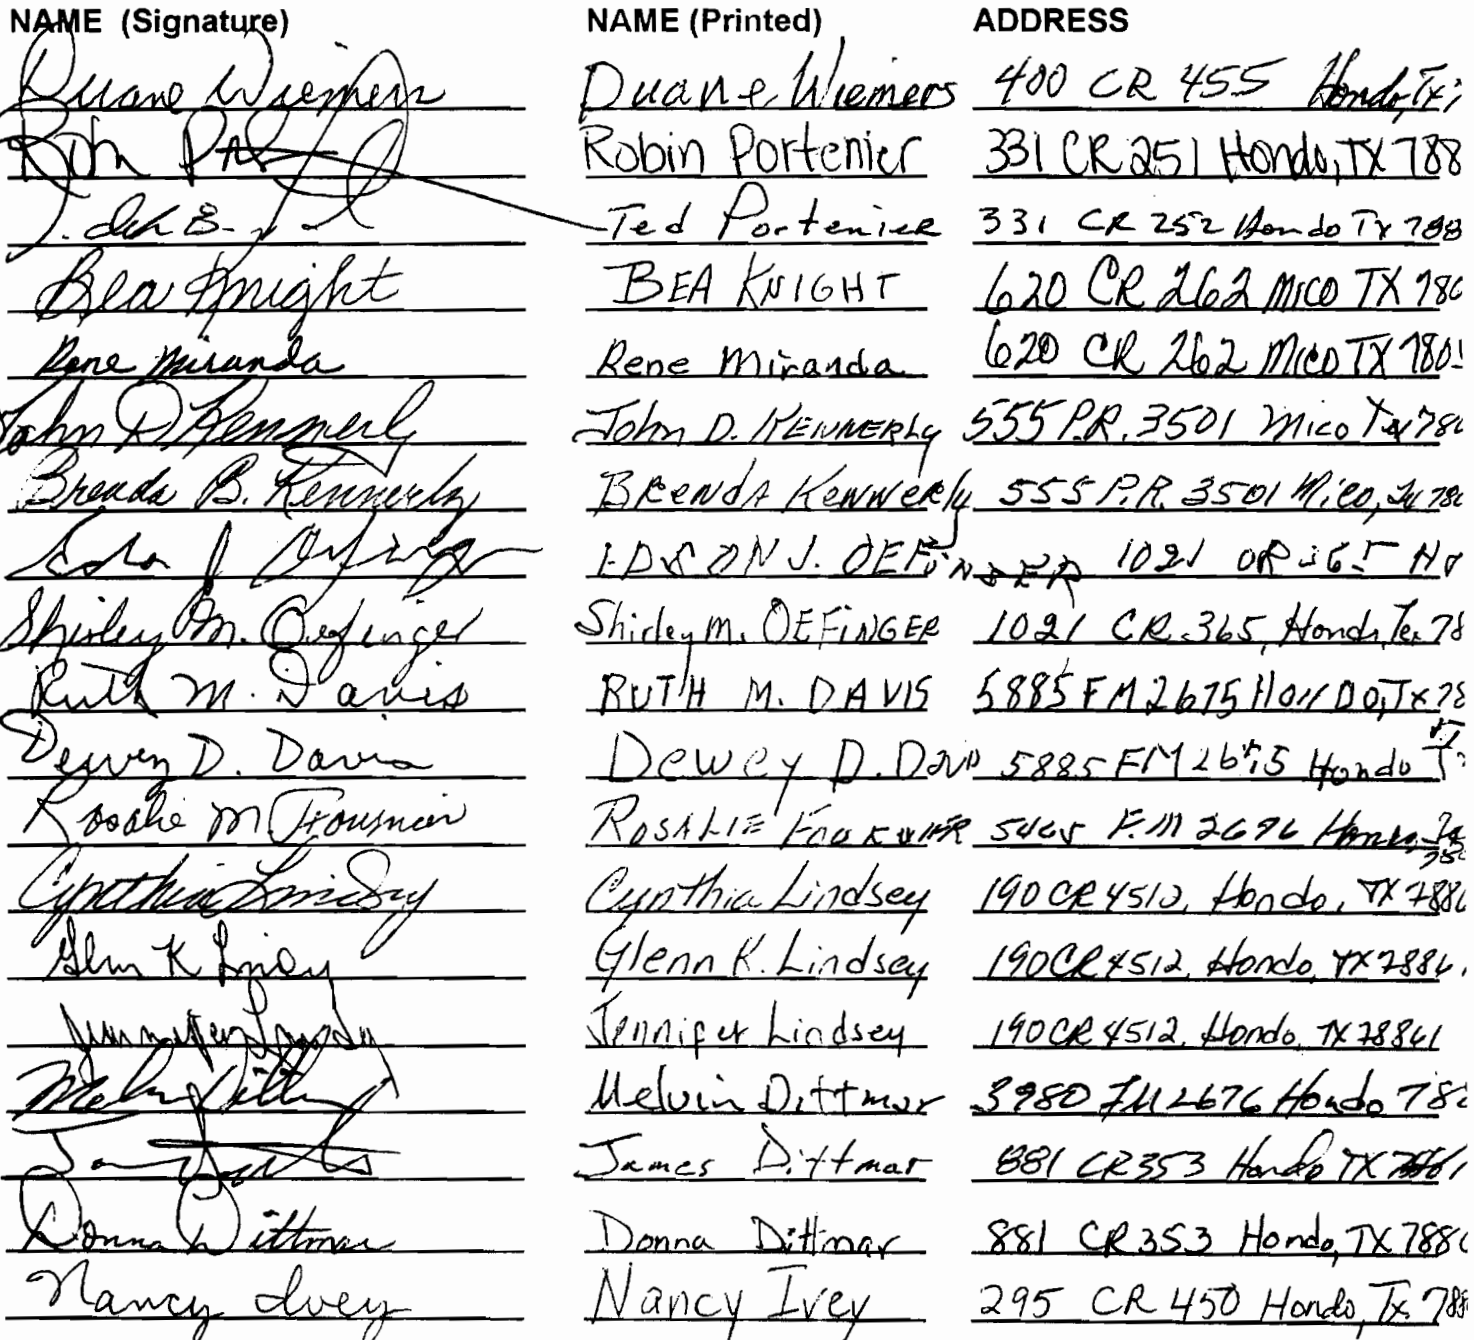 NAME (Signature) NAME (Printed) ADDRESS
Duane Wiemers Duane Wiemers 400 CR 455 Hondo, Tx 7
Robin Portenier 331 CR 251 Hondo, TX 788
Ted Portenier 331 CR 252 Hondo Tx 788
Bea Knight BEA KNIGHT 620 CR 262 MICO TX 780
Rene Miranda Rene Miranda 620 CR 262 MICO TX 780
John D Kennerly John D. KENNERLY 555 P.R. 3501 Mico Tx 780
Brenda B. Kennerly BRENDA KENNERly 555 P.R. 3501 Mico, Tx 780
EDSON J. OEFiNGER 1021 CR 365 Ho
Shirley M. Oefinger Shirley M. OEFiNGER 1021 CR 365, Hondo, Tex 78
Ruth M. Davis RUTH M. DAVIS 5885 FM 2675 HONDO, Tx 78
Dewey D. Davis Dewey D. Davis 5885 FM Hondo
Rosalie M Fournier ROSALIE F.M 2676
Cynthia Lindsey Cynthia Lindsey 190 CR 4512, Hondo, TX 7886
Glenn K Lindsey Glenn K. Lindsey 190 CR 4512, Hondo, TX 7886
Jennifer Lindsey Jennifer Lindsey 190 CR 4512, Hondo, TX 78861
Melvin Dittmar Melvin Dittmar 3980 FM 2676 Hondo 788
James Dittmar 881 CR 353 Hondo TX
Donna Dittmar Donna Dittmar 881 CR 353 Hondo, TX 7886
Nancy Ivey Nancy Ivey 295 CR 450 Hondo, Tx 788